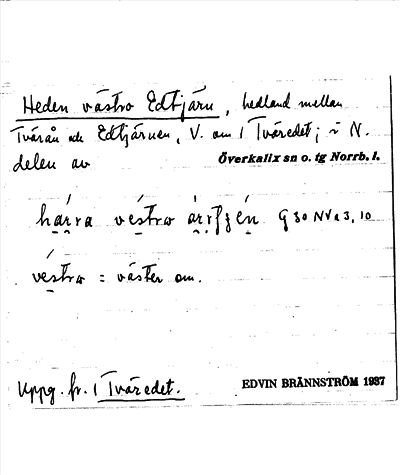 Heden västro Edtjärn, hedland mellan
Tvärån och Edtjärnen, V. om 1 Tväredet; i N.
delen av Överkalix sn o. tg Norrb. l.
västro G 30 NV a 3, 10
västro = väster om.
Uppg. fr. 1 Tväredet. EDVIN BRÄNNSTRÖM 1937